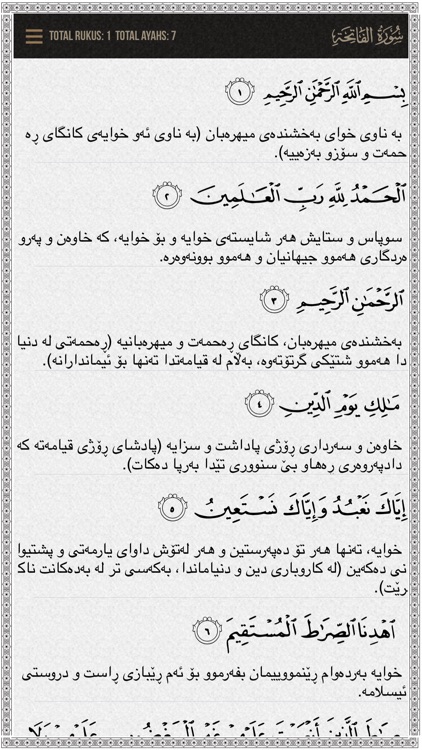 TOTAL RUKUS: 1 TOTAL AYAHS: 7
سُورَةُ الفَاتِحَةِ
بِسْمِ اللَّهِ الرَّحْمَٰنِ الرَّحِيمِ ١
به ناوی خوای بەخشندەی میهرەبان (به ناوی ئەو خوایەی کانگای ڕه
حمەت و سۆزو بەزەییه).
الْحَمْدُ لِلَّهِ رَبِّ الْعَالَمِينَ ٢
سوپاس و ستایش هەر شایستەی خوایه و بۆ خوایه، که خاوەن و پەرو
ەردگاری هەموو جیهانیان و هەموو بوونەوەره.
الرَّحْمَٰنِ الرَّحِيمِ ٣
بەخشندەی میهرەبان، کانگای ڕەحمەت و میهرەبانیه (ڕەحمەتی له دنیا
دا هەموو شتێکی گرتۆتەوه، بەڵام له قیامەتدا تەنها بۆ ئیماندارانه).
مَالِكِ يَوْمِ الدِّينِ ٤
خاوەن و سەرداری ڕۆژی پاداشت و سزایه (پادشای ڕۆژی قیامەته که
دادپەروەری ڕەهاو بێ سنووری تێدا بەرپا دەکات).
إِيَّاكَ نَعْبُدُ وَإِيَّاكَ نَسْتَعِينُ ٥
خوایه، تەنها هەر تۆ دەپەرستین و هەر لەتۆش داوای یارمەتی و پشتیوا
نی دەکەین (له کاروباری دین و دنیاماندا، بەکەسی تر له بەدەکانت ناک
رێت).
اهْدِنَا الصِّرَاطَ الْمُسْتَقِيمَ ٦
خوایه بەردەوام ڕێنموویيمان بفەرموو بۆ ئەم ڕێبازی ڕاست و دروستی
ئیسلامه.